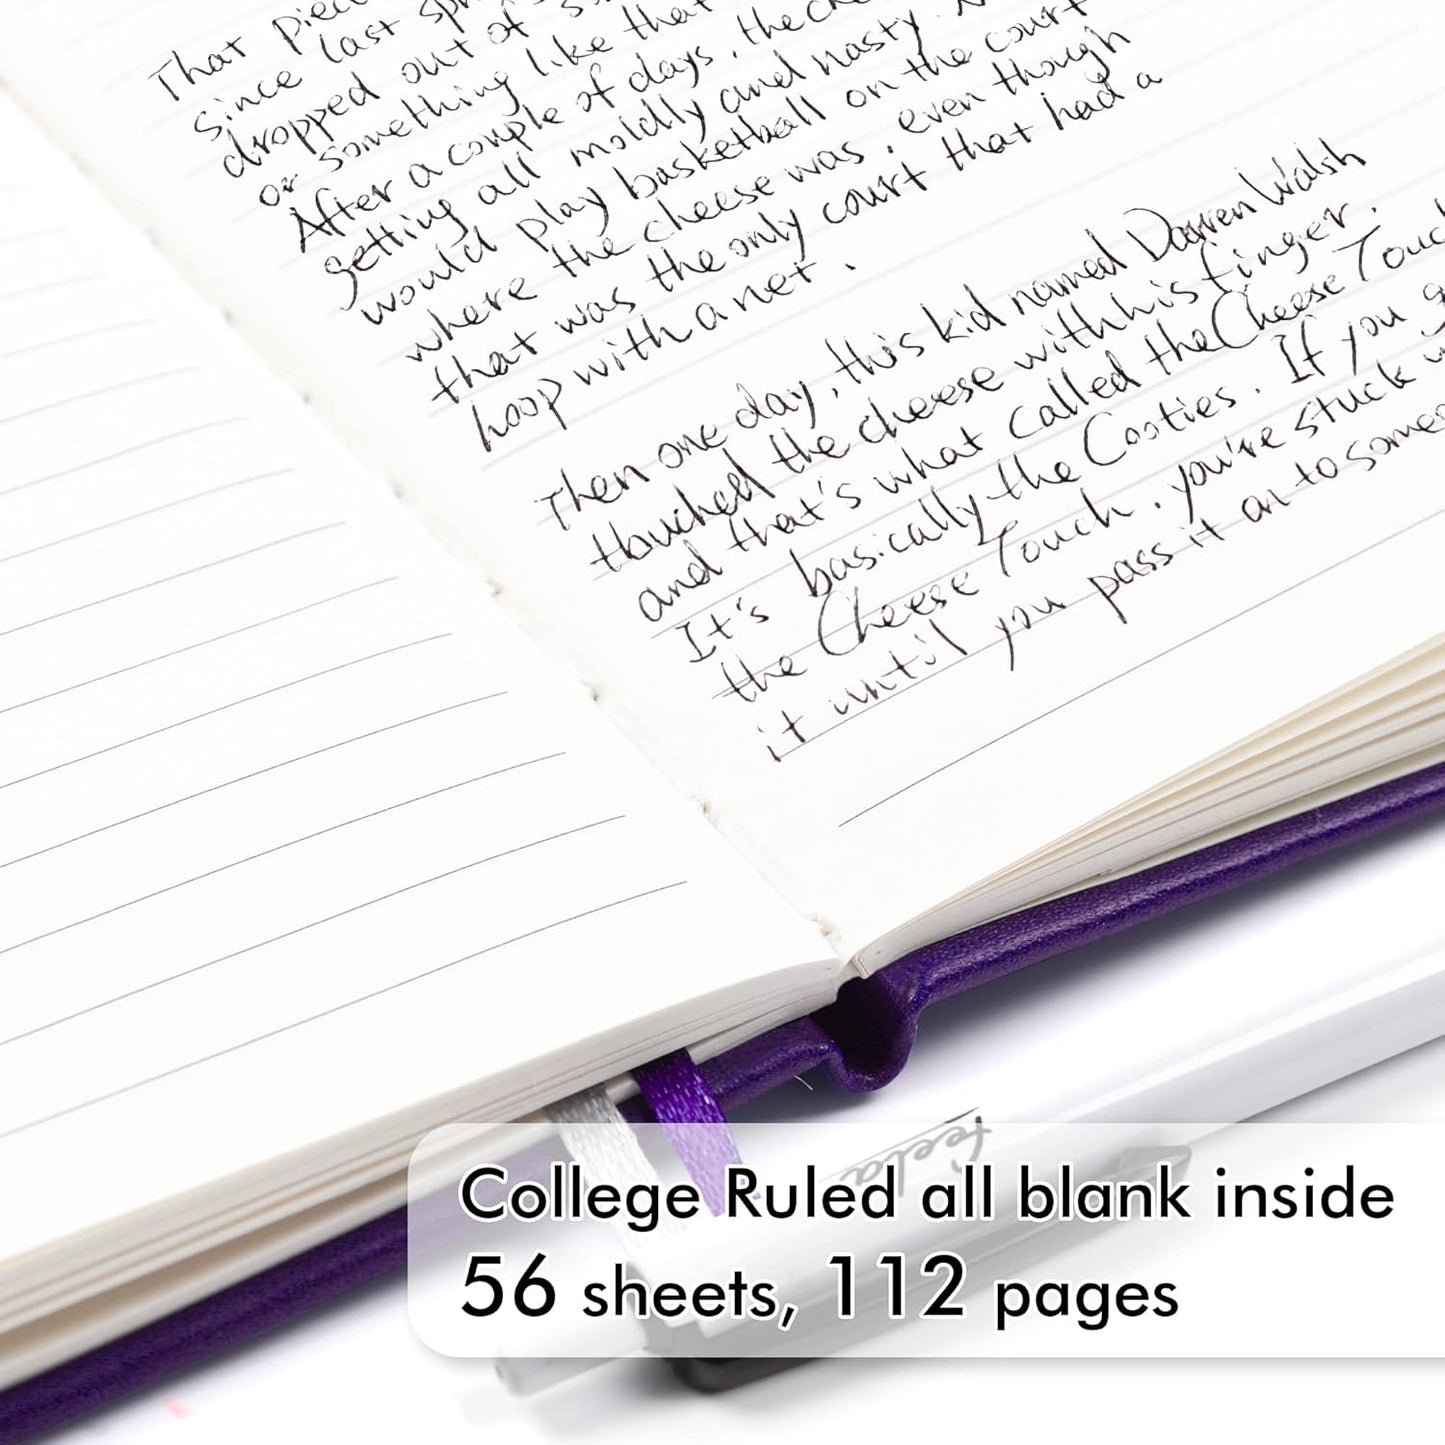 That piec
since last spr
dropped out of s
or something like that
After a couple of days, the che
getting all moldly and nasty. N
would play basketball on the court
where the cheese was, even though
that was the only court that had a
hoop with a net.
Then one day, this kid named Darren Walsh
thuched the cheese with his finger.
and that's what called the Cheese Touch
It's basically the Cooties. If you g
the Cheese Touch, you're stuck w
it until you pass it on to someo
feela
College Ruled all blank inside
56 sheets, 112 pages